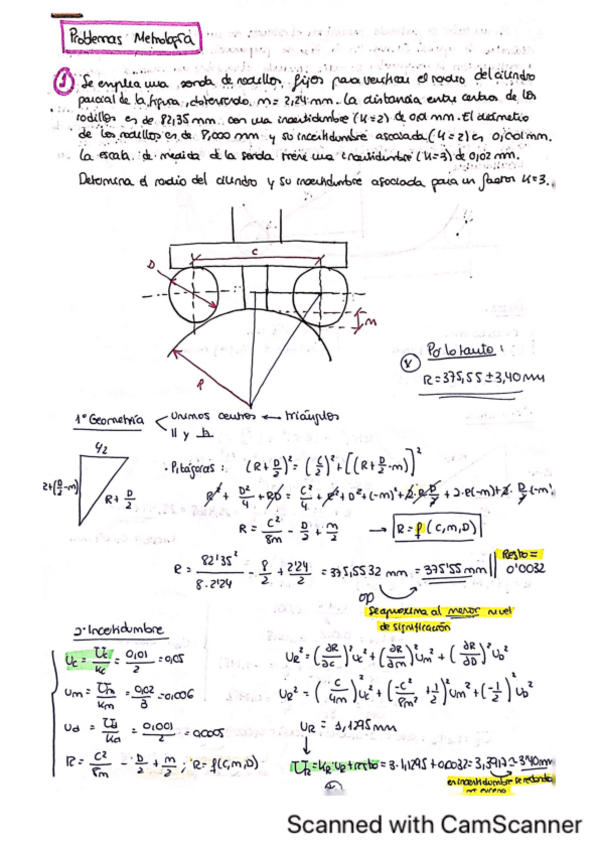 Problemas Metrología
① Se emplea una sonda de rodillos fijos para verificar el radio del cilindro
parcial de la figura, obteniendo m = 2,24 mm. La distancia entre centros de los
rodillos es de 82,35 mm con una incertidumbre (K=2) de 0,01 mm. El diámetro
de los rodillos es de 8,000 mm y su incertidumbre asociada (K=2) es 0,001 mm.
La escala de medida de la sonda tiene una incertidumbre (K=3) de 0,02 mm.
Determina el radio del cilindro y su incertidumbre asociada para un factor K=3.
C
D
m
R
Por lo tanto:
R = 375,55 ± 3,40 mm
1º Geometría
Unimos centros ← triángulos
|| y
C/2
R + D/2
· Pitágoras: (R+D/2)² = (C/2)² + [(R+D/2-m)]²
R = C²/8m - D/2 + m/2 → R = f(C,m,D)
R = 82'35²/8·2'24 - 8/2 + 2'24/2 = 375,5532 mm = 375'55 mm
Resto =
0'0032
Se aproxima al menor nivel
de significación
2º Incertidumbre
Uc = Uc/Kc = 0,01/2 = 0,05
Um = Um/Km = 0,02/3 = 0,006
Ud = Ud/Kd = 0,001/2 = 0,0005
R = C²/8m - D/2 + m/2; R = f(C,m,D)
UR² = (∂R/∂C)² Uc² + (∂R/∂m)² Um² + (∂R/∂D)² UD²
UR² = (C/4m)² Uc² + (-C²/8m² + 1/2)² Um² + (-1/2)² UD²
UR = 1,1295 mm
UR = KR·UR + resto = 3·1,1295 + 0,0032 = 3,3917 ≈ 3,40 mm
en incertidumbre se redondea
Scanned with CamScanner